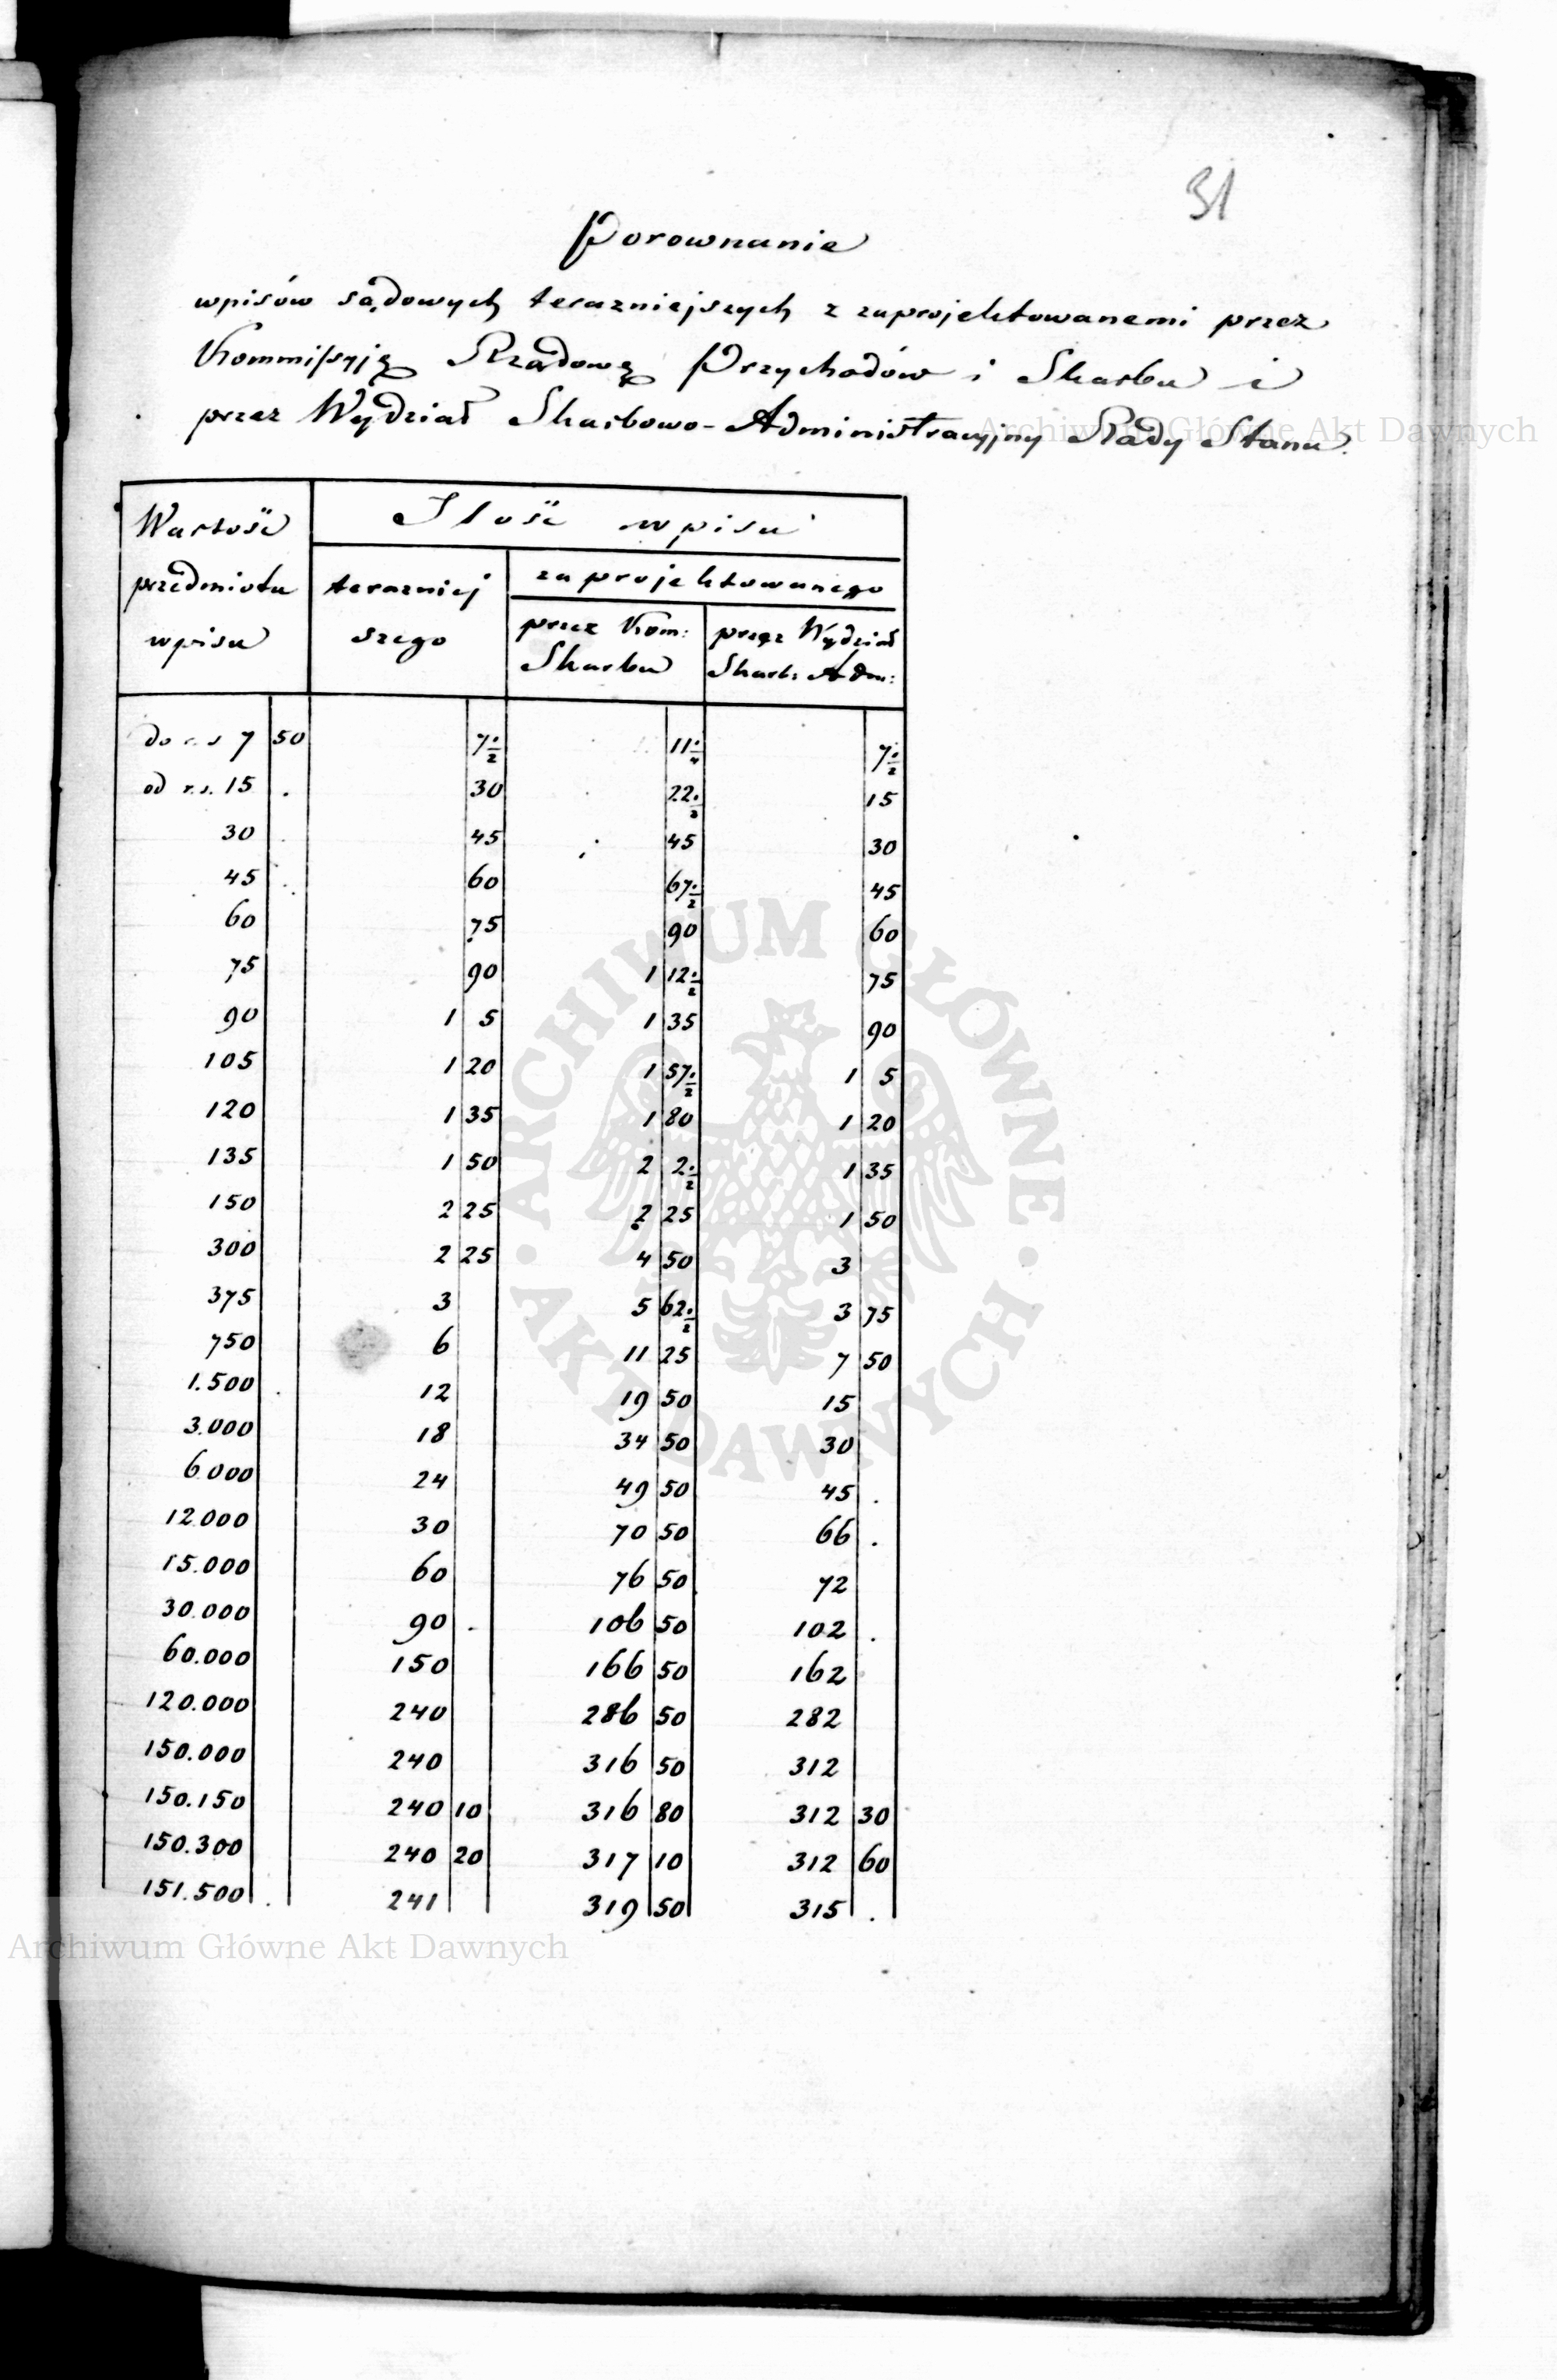 31
Porownanie
wpisów sądowych terazniejszych z zaprojektowanemi przez
Kommissyję Rządową Przychodów i Skarbu i
przez Wydział Skarbowo-Administracyjny Rady Stanu.
Archiwum Główne Akt Dawnych
Wartość Ilość wpisu
przedmiotu terazniej zaprojektowanego
wpisu szego przez Kom: przez Wydział
Skarbu Skarb: Adm:
do r. s 7 50 7 1/2 11 1/4 7 1/2
od r. s. 15 . 30 22 1/2 15
30 45 45 30
45 60 67 1/2 45
60 75 90 60
75 90 1 12 1/2 75
90 1 5 1 35 90
105 1 20 1 57 1/2 1 5
120 1 35 1 80 1 20
135 1 50 2 2 1/2 1 35
150 2 25 2 25 1 50
300 2 25 4 50 3
375 3 5 62 1/2 3 75
750 6 11 25 7 50
1.500 12 19 50 15
3.000 18 34 50 30
6.000 24 49 50 45 .
12.000 30 70 50 66 .
15.000 60 76 50 72
30.000 90 . 106 50 102 .
60.000 150 166 50 162
120.000 240 286 50 282
150.000 240 316 50 312
150.150 240 10 316 80 312 30
150.300 240 20 317 10 312 60
151.500 . 241 319 50 315 .
ARCHIWUM GŁÓWNE · AKT DAWNYCH ·
Archiwum Główne Akt Dawnych